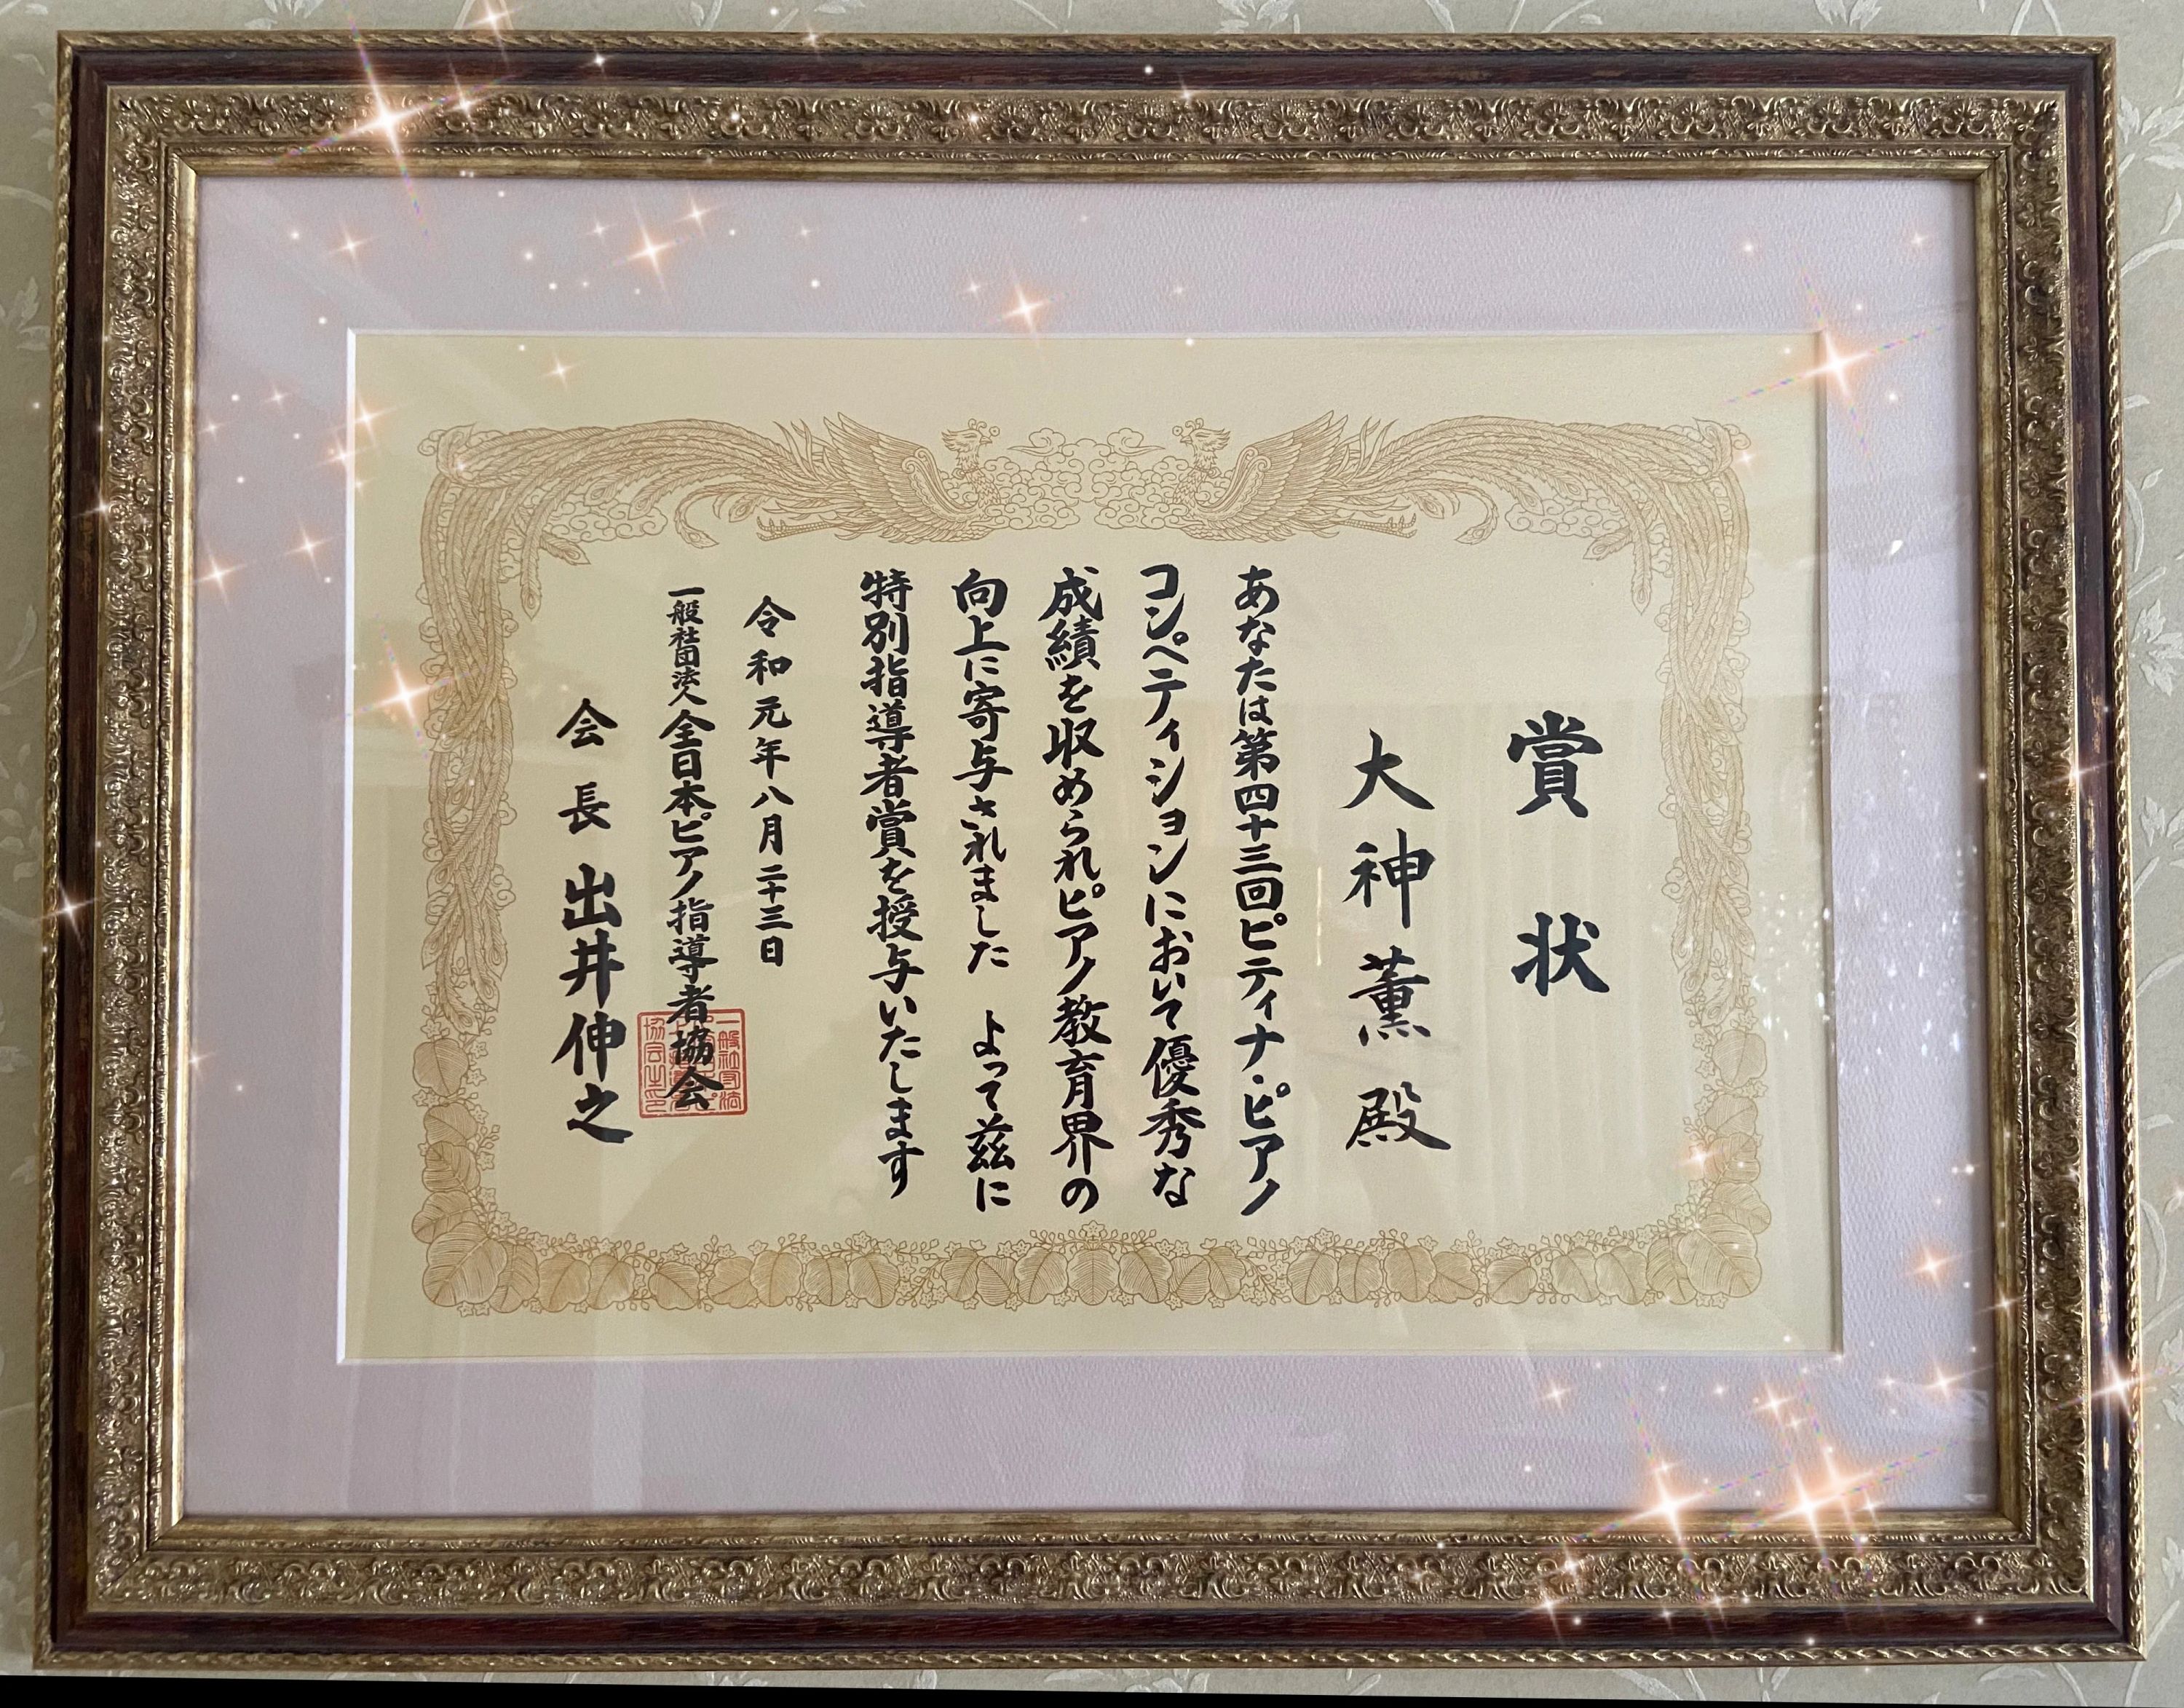 賞状
大神薫殿
あなたは第四十三回ピティナ・ピアノ
コンペティションにおいて優秀な
成績を収められピアノ教育界の
向上に寄与されました よって茲に
特別指導者賞を授与いたします
令和元年八月二十三日
一般社団法人全日本ピアノ指導者協会
会長 出井伸之